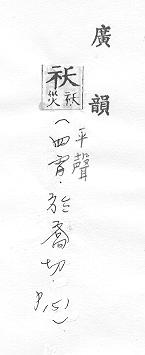 廣韻
祅
祅災
平聲
（四宵．於喬切．P.151）